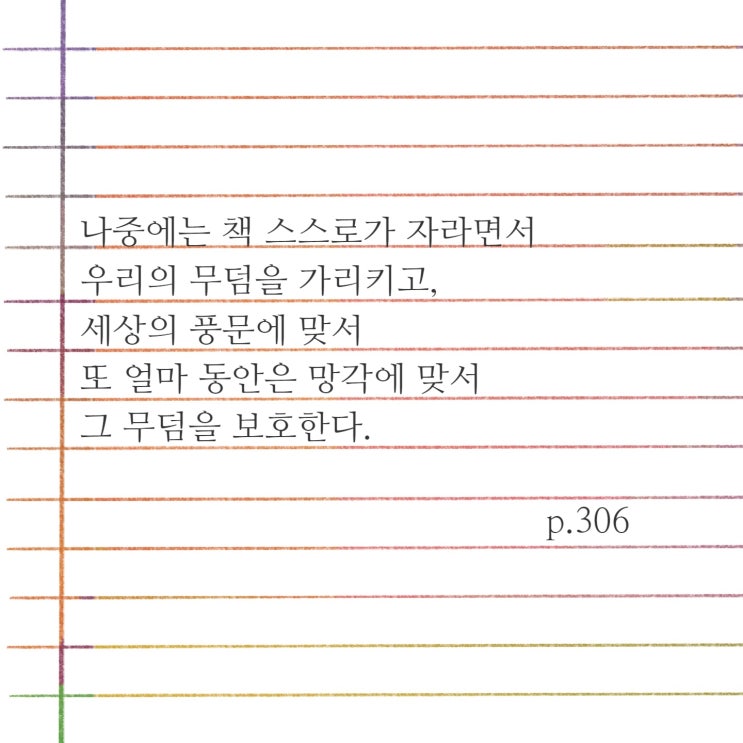 나중에는 책 스스로가 자라면서
우리의 무덤을 가리키고,
세상의 풍문에 맞서
또 얼마 동안은 망각에 맞서
그 무덤을 보호한다.
p.306